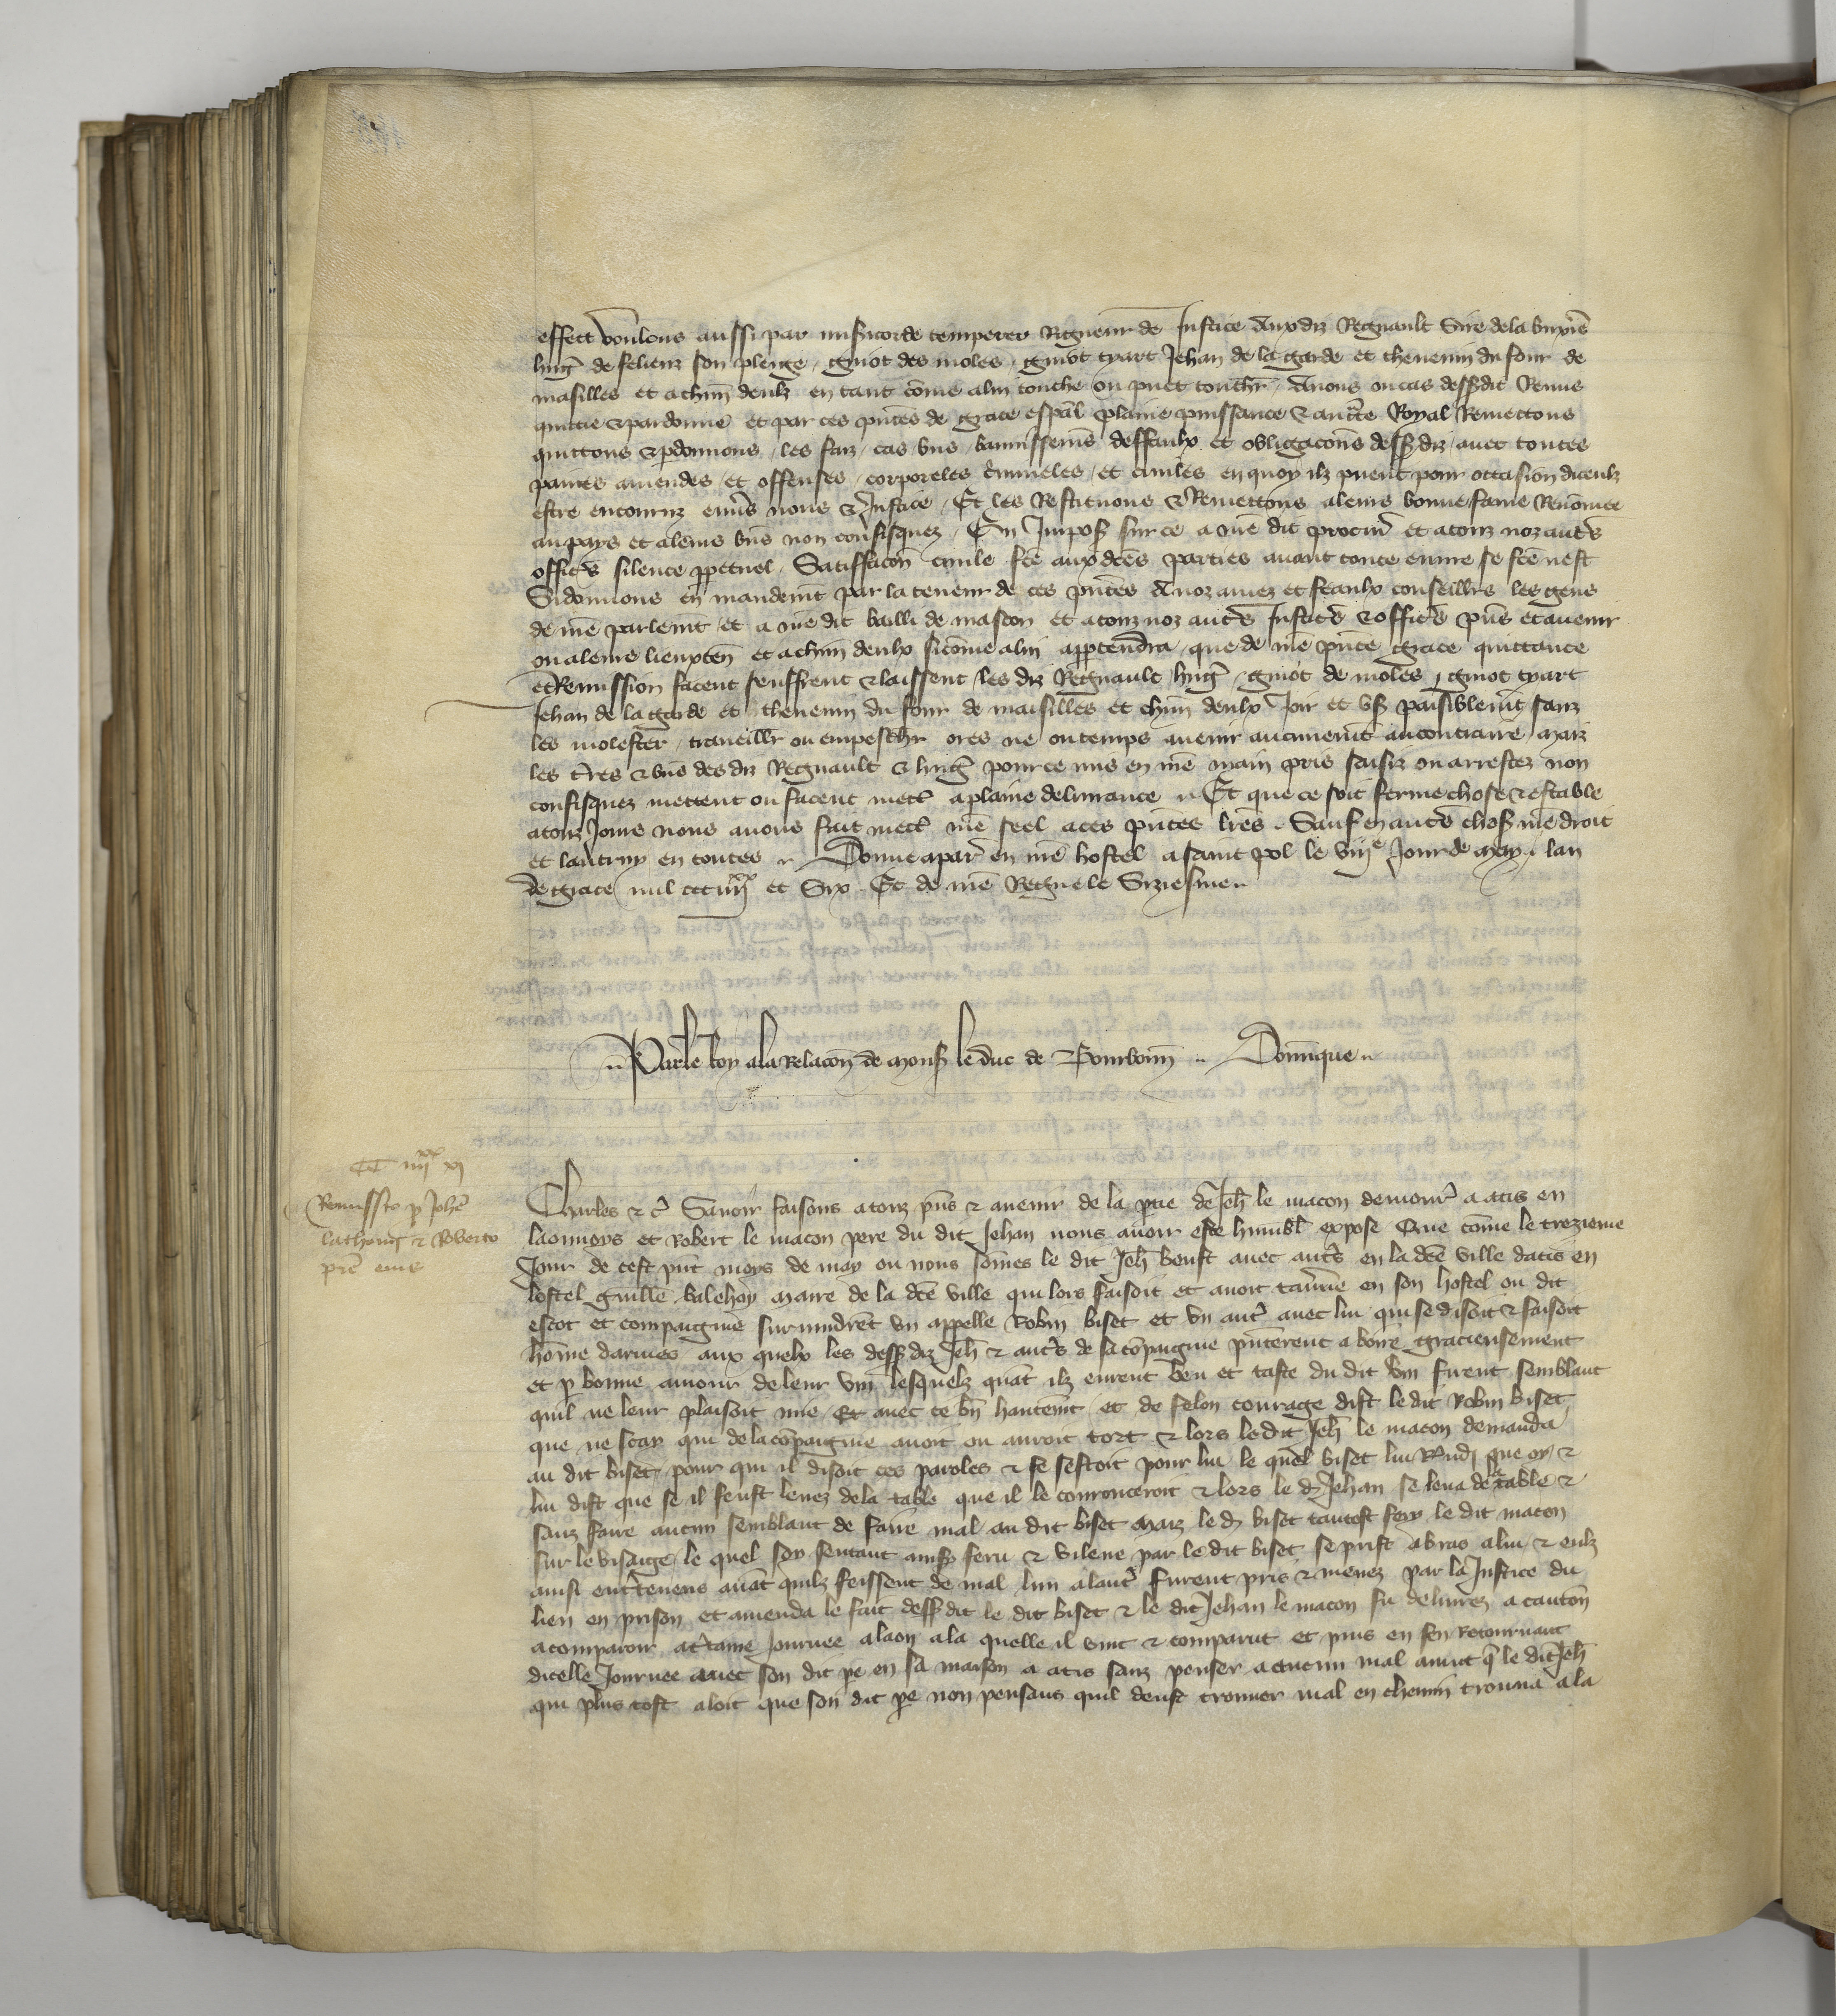 effect voulons aussi par misicorde temperer Rigueur de Justice Aux diz Regnault Sire de la buxie
hug̃ de felienz son pleige, guiot des moles, guiot tyart Jehan de la garde et thevenin du four de
masilles et a chũn deulz en tant cõme a lui touche ou puet touch̃r Avons ou cas dessusdit Remis
quittie & pardonne et par ces pñtes de grace esp̃al plaine puissance & auct̃te Royal Remettons
quittons & p̃donnons les faiz, cas, bannissemẽs deffaulx et obligacõns dess diz avec toutes
paines amendes et offenses corporeles c̃imineles et civiles en quoy ilz puent pour occasion diceulz
estre encouruz env̾s nous & Justice, Et les Restituons & Remettons a leurs bonne fame Renõmee
au pays et a leurs biẽs non confisquez, En Imposs sur ce a nr̃e dit procur̃ et a touz noz autr̃s
offic̾s silence p̱petuel Satisfaccõn civile fc̃e aux dc̃es parties avant toute euvre se fc̃e nest
Si donnons en mandemt par la teneur de ces pñtes A noz amez et feaulx conseill̾rs les gens
de nr̃e parlemt et a nr̃e dit bailli de mascon et a touz noz autr̃s Justic̾s & offic̾s pñs et avenir
ou a leurs lieuxteñ et a chũn deulx si cõme a lui app̱tendra, que de nr̃e pñte grace quittance
et Remission facent seuffrent & laissent les diz Regnault hug̃ guiot de moles, guiot tyart
Jehan de la garde et thevenin du four de maisilles et chũn deulx Joir et us̾ paisiblemt sanz
les molester, traveill̾r ou empesch̾r ores ne ou temps avenir aucunemt au contraire Maiz
les t̾res & biẽs des diz Regnault & hug̃ pour ce mis en nr̃e main pris saisiz ou arrestez non
confisquez mettent ou facent mectr̃ a plaine delivrance .. Et que ce soit ferme chose & estable
a touz Jours nous avons fait mectr̃ nr̃e seel a ces pñtes lr̃es. Sauf en autr̃s choss nr̃e droit
et lautruy en toutes .. Donne a par̃ en nr̃e hostel a saint pol le viije Jour de may. lan
de grace mil ccciiijxx et Six. Et de nr̃e Regne le Siziesme ..
.. Par le Roy a la Relacõn de mons̾ le duc de Bourboiñ .. Domiñque ..
CC iiijxx xj
Remissio p̱ Joh̃e
lathomj & Roberto
pr̃e eius
Charles & c̾ Savoir faisons a touz pñs & avenir de la p̱tie de Jeh̃ le macon demour̃ a atis en
laonnoys et Robert le macon pere du dit Jehan nous avoir este humbl̃ expose Que cõme le trezieme
Jour de cest pñt moys de may ou nous sõmes le dit Jeh̃ beust avec autr̃s en la dc̃e ville datis en
lostel guille Balehoy maire de la dc̃e ville qui lors faisoit et avoit tav̾ne en son hostel ou dit
escot et compaignie survindrẽt un appelle Robin biset et un autr̃ avec lui qui se disoit & faisoit
hõme darmes aux quelx les dess diz Jeh̃ & autr̃s de sa cõpaignie pñterent a boire gracieusement
et p̱ bonne amour de leur vin lesquelz quãt ilz eurent beu et taste du dit vin firent semblant
quil ne leur plaisoit mie Et avec ce biñ hautemt et de felon courage dist le dit Robin biset
que ne scay qui de la cõpaignie avoit ou auroit tort & lors le dit Jeh̃ le macon demanda
au dit biset, pour qui il disoit ces paroles & se sestoit pour lui le quel biset lui Rñdj que oy &
lui dist que se il feust levez de la table que il le courouceroit & lors le d̃ Jehan se leva de table &
sanz faire aucun semblant de faire mal au dit biset maiz le d̃ biset tantost fery le dit macon
sur le visaige, le quel soy sentant ainsy feru & vilene par le dit biset se prist a bras a lui & eulz
ainsi entr̃tenens avãt quilz feissent de mal lun a lautr̃ furent pris & menez par la Justice du
lieu en prison et amenda le fait dess dit le dit biset & le dit Jehan le macon fu delivrez a cautõn
a comparoir a c̾taine Journee a laon a la quelle il vint & comparut et puis en sen Retournant
dicelle Journee avec son dit p̱e en sa maison a atis sanz penser a aucun mal avint q̃ le dit Jeh̃
qui plus tost aloit que son dit p̱e non pensans quil deust trouver mal en chemin trouva a la